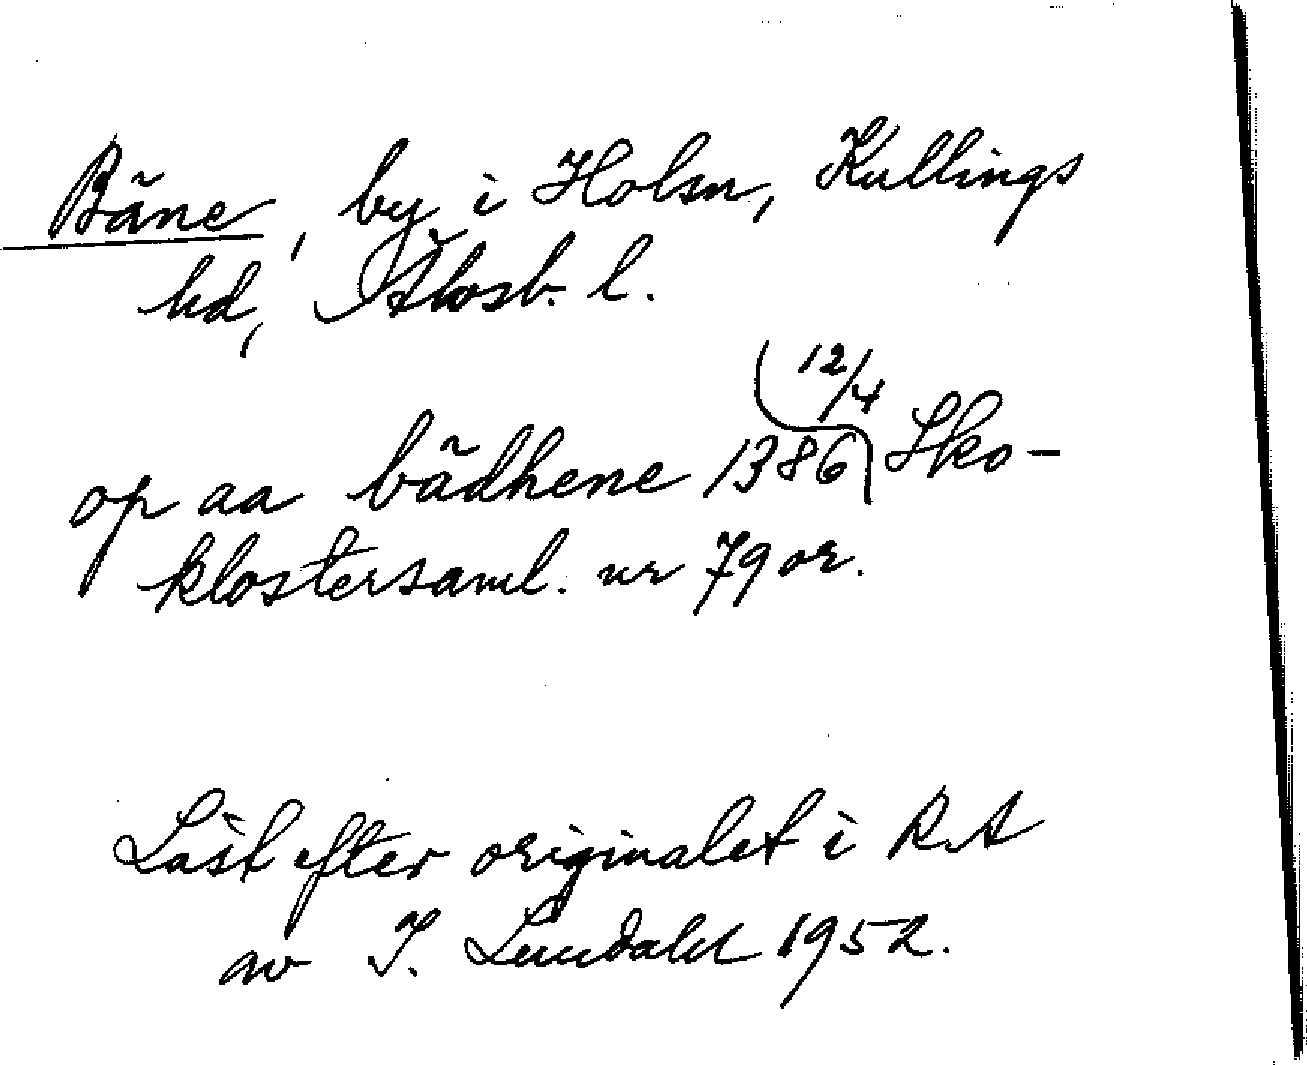 Bäne, by i Holm, Kullings
hd, Älvsb. l.
op aa bädhene 1386 12/4 Sko-
klostersaml. nr 79 or.
Läst efter originalet i RA
av I. Lundahl 1952.